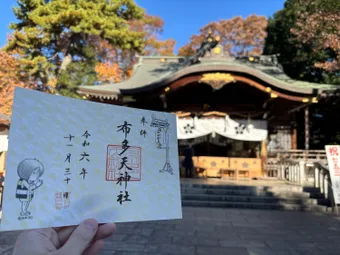 奉拝
布多天神社
令和六年
十一月三十日
祝